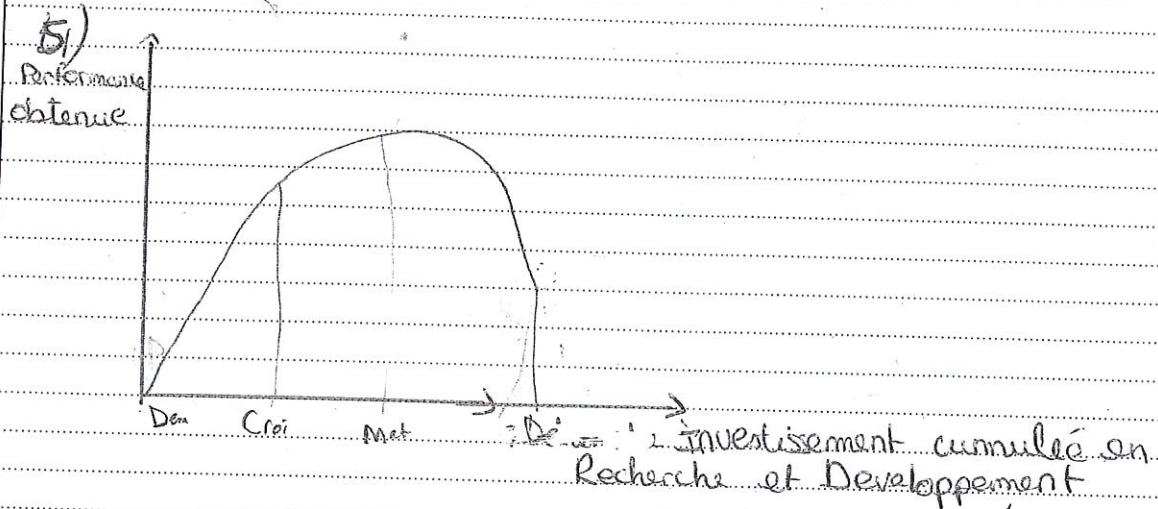 51)
Performance
obtenue
Dem Croi Mat
investissement cumuleé en
Recherche et Developpement